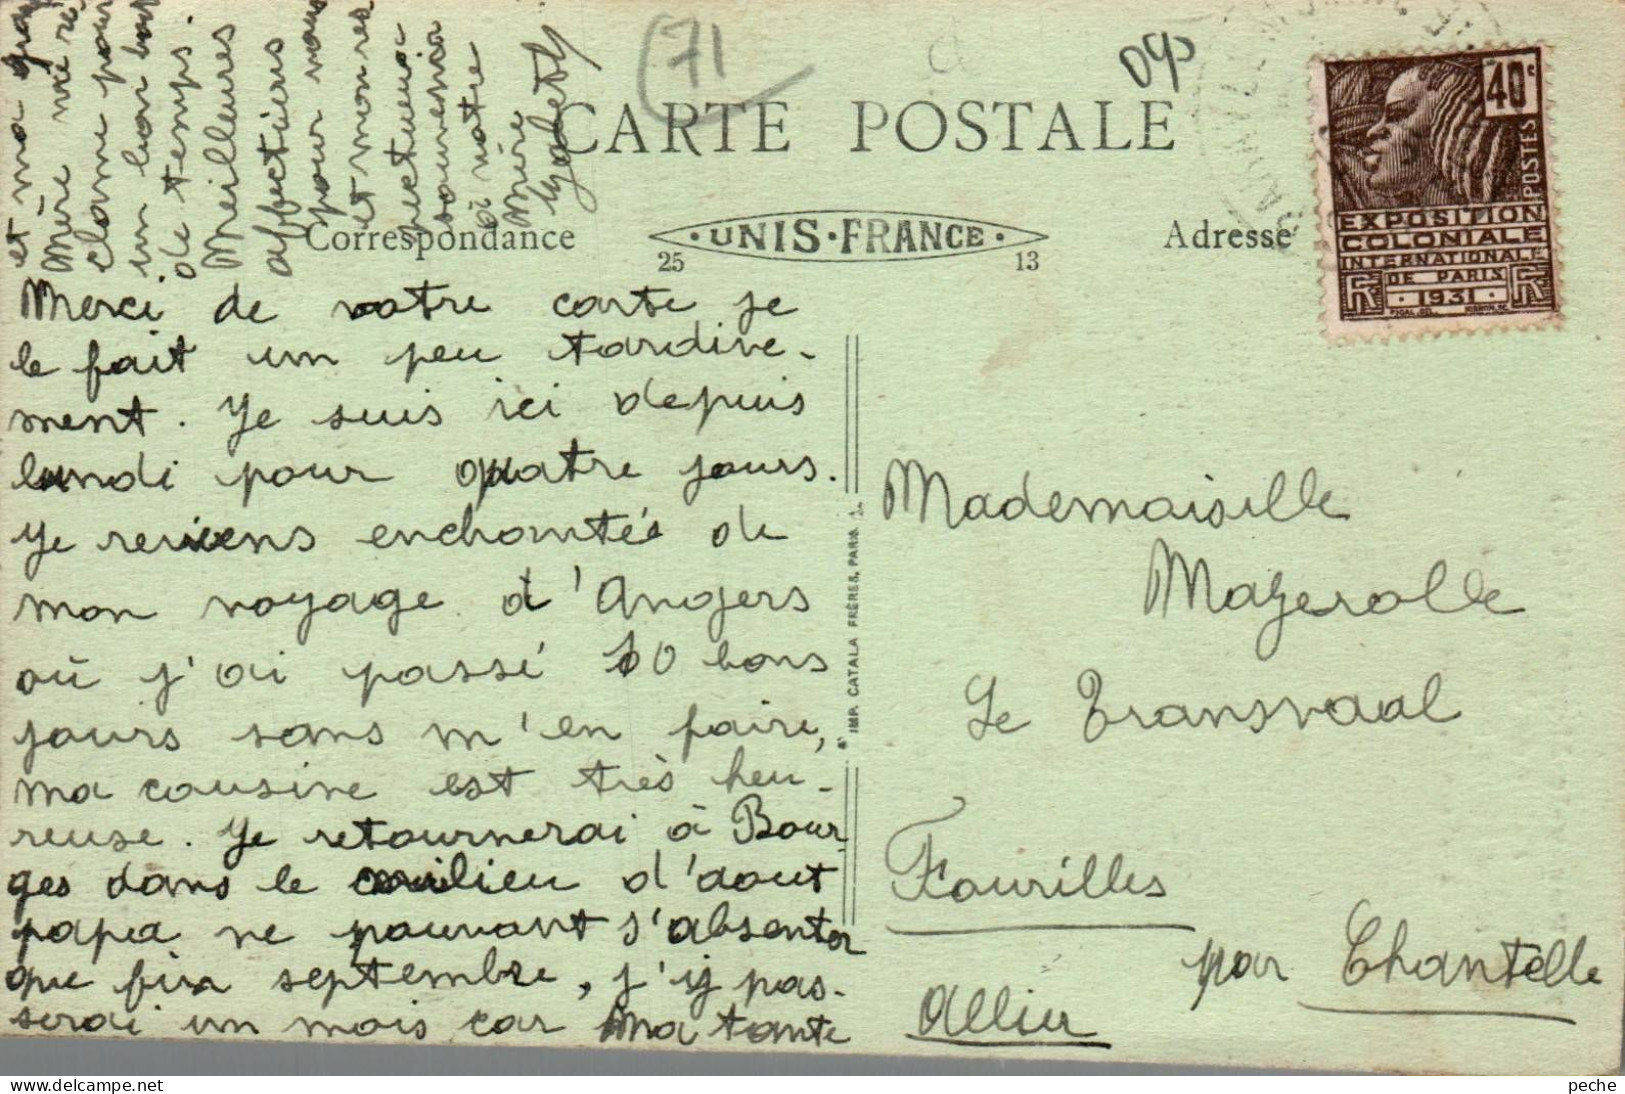 Merci de votre carte je
le fait un peu tardive-
ment. Je suis ici depuis
lundi pour quatre jours.
Je reviens enchantée de
mon voyage d'Angers
où j'ai passé 10 bons
jours sans m'en faire,
ma cousine est très heu-
reuse. Je retournerai à Bour-
ges dans le milieu d'aout
papa ne pouvant s'absenter
que fin septembre, j'y pas-
serai un mois car Ma tante
et ma
Mère me ré
clame pour
un bon bout
de temps.
Meilleures
affections
pour vous
et mon res
pectueux
souvenir
à votre
Mère
(71
CARTE POSTALE
Correspondance
UNIS-FRANCE
25
13
Adresse
40c
POSTES
EXPOSITION
COLONIALE
INTERNATIONALE
DE PARIS
1931
RF RF
IMP. CATALA FRÈRES, PARIS
Mademoiselle
Mazerolle
Le Transvaal
Fourilles
par Chantelle
Allier
peche